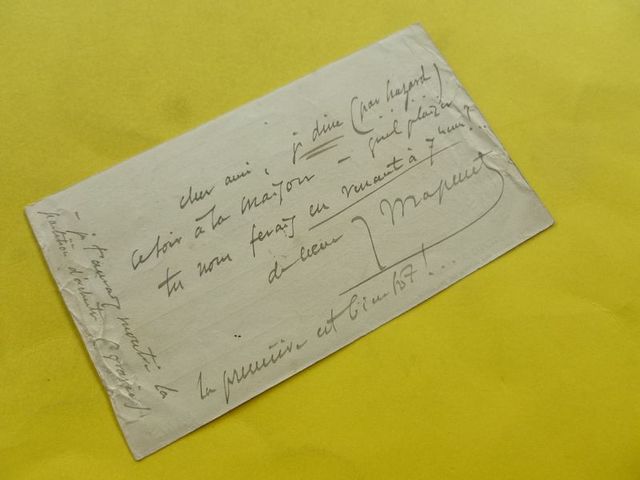 cher ami, je dine (par hazard)
ce soir à la maison – quel plaisir
tu nous ferais en venant à 7 heures?..
de cœur J Massenet
la première est bientôt!...
– je t'aurais montré la
partition d'orchestre